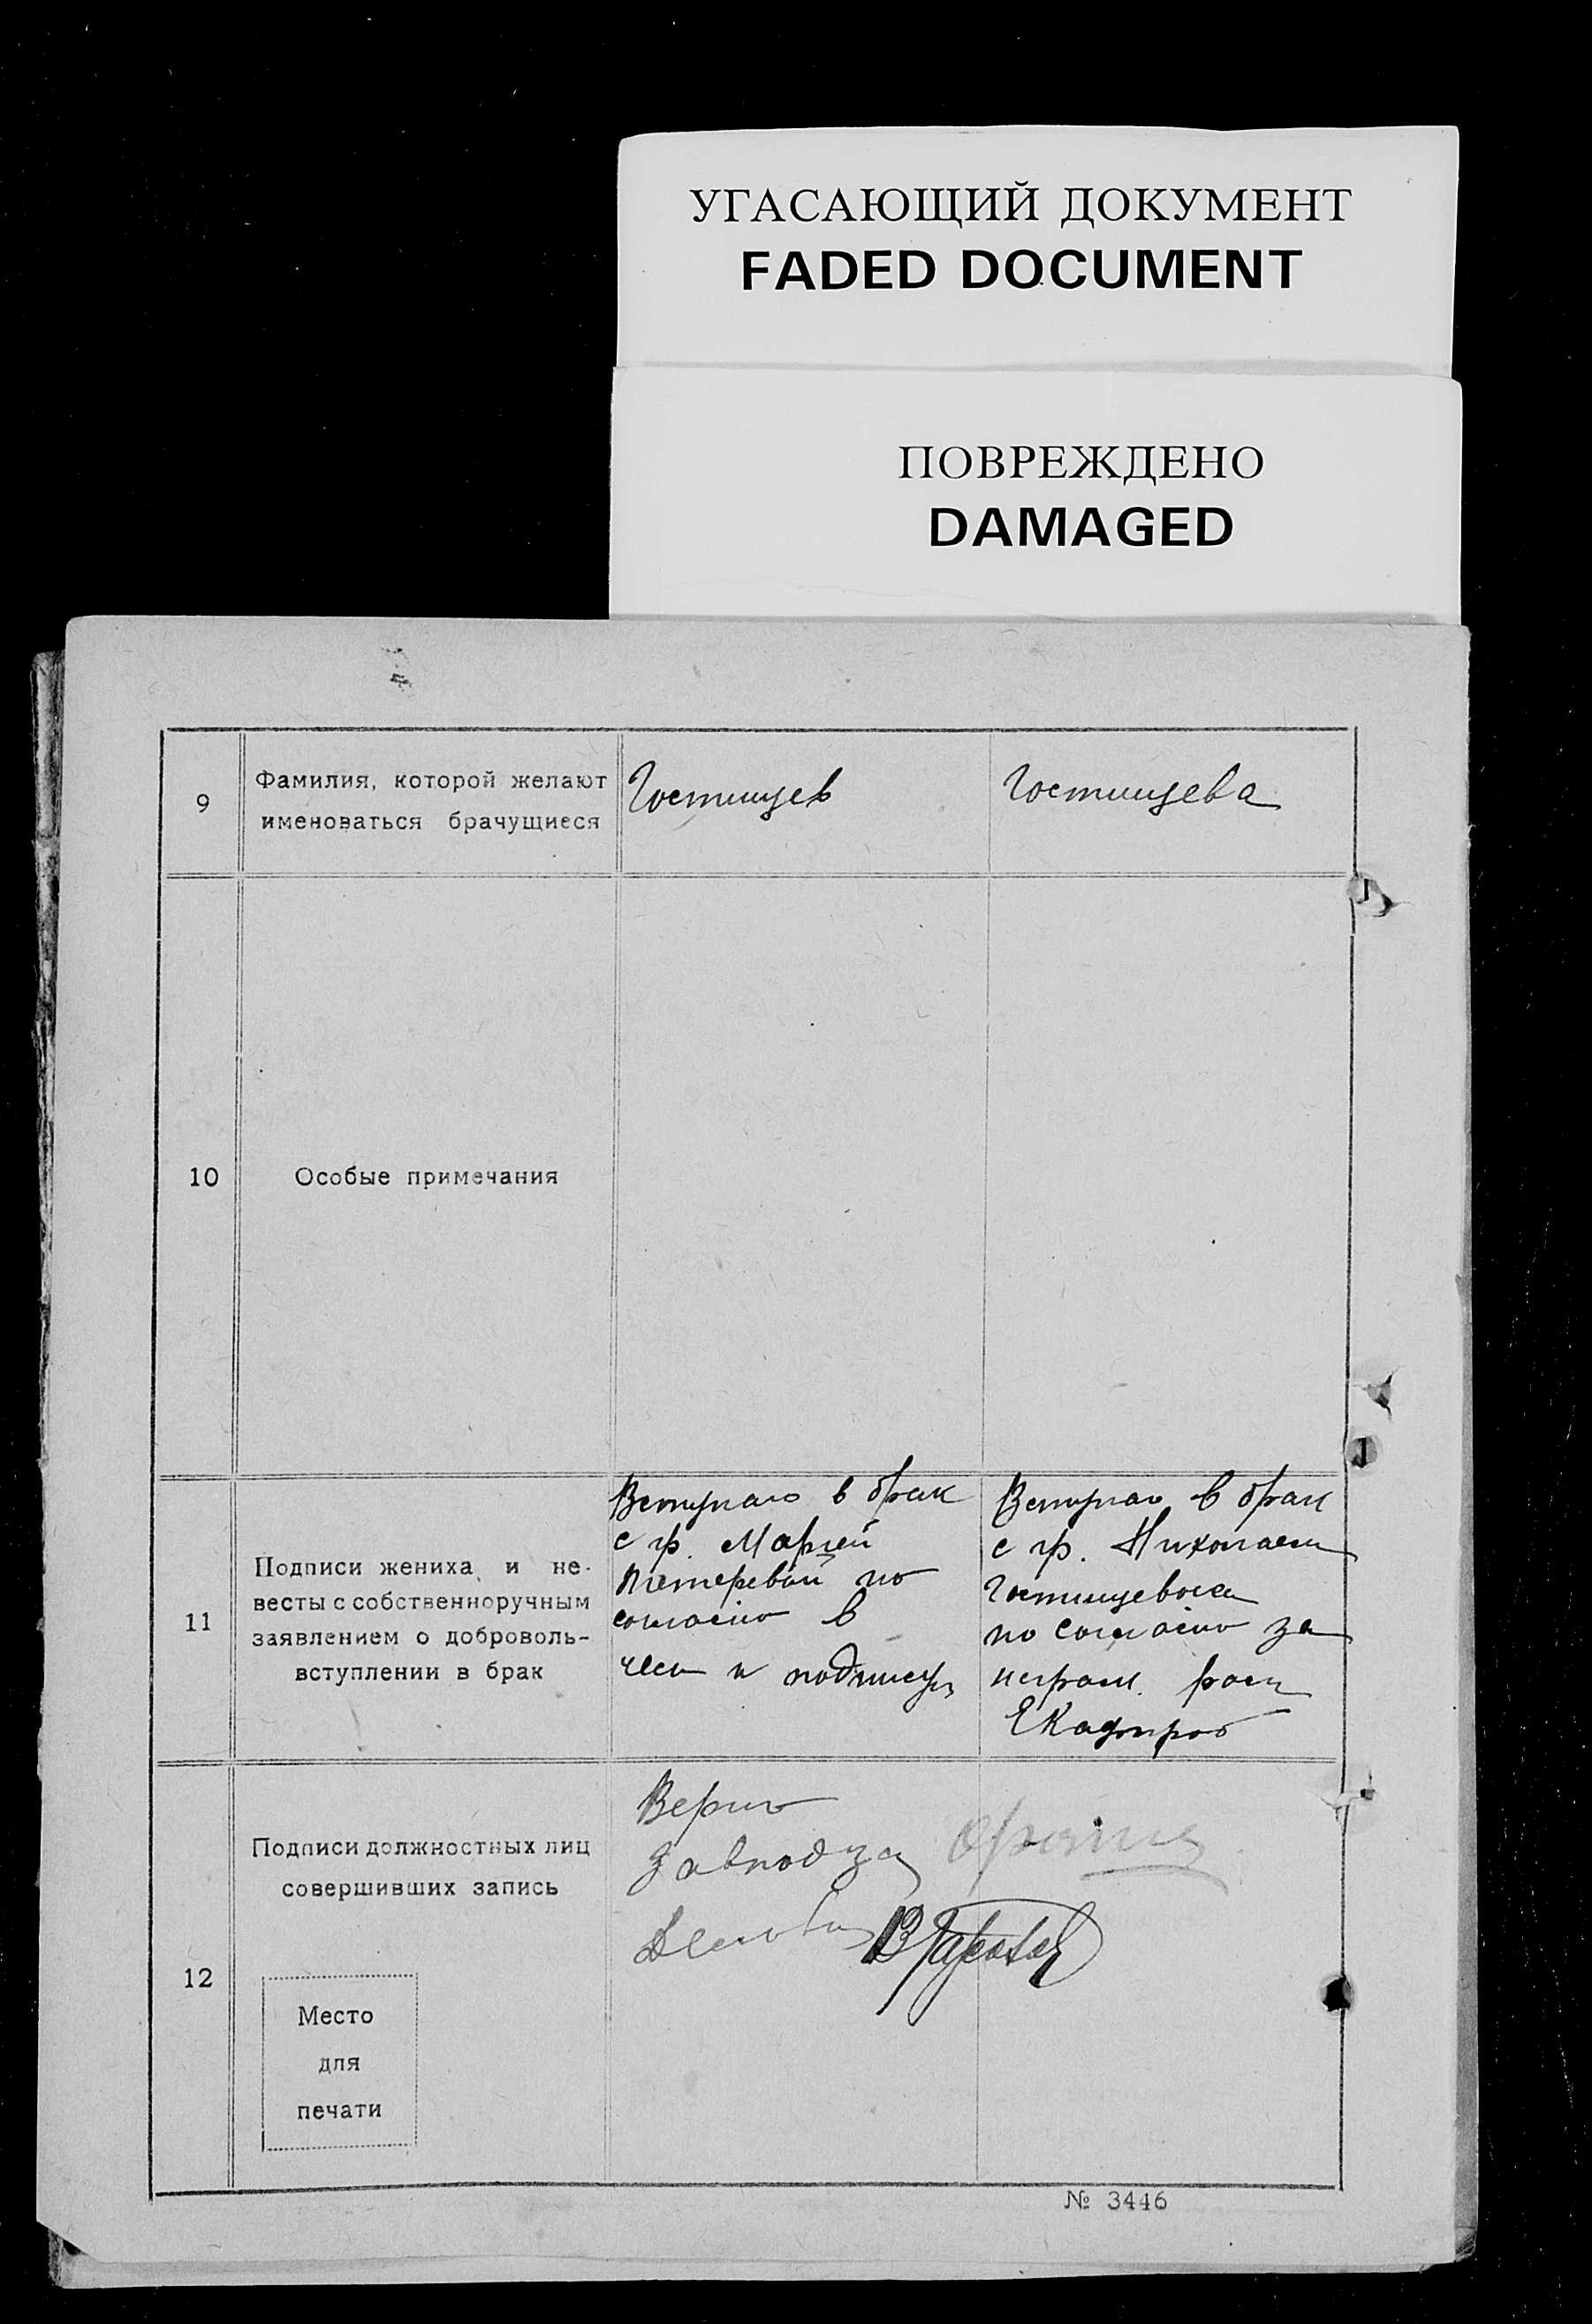 УГАСАЮЩИЙ ДОКУМЕНТ
FADED DOCUMENT
ПОВРЕЖДЕНО
DAMAGED
9
Фамилия, которой желают
именоваться брачущиеся
Гостищев
Гостищева
10
Особые примечания
11
Подписи жениха и не-
весты с собственноручным
заявлением о доброволь-
вступлении в брак
Вступаю в брак
с гр. Марией
по
в
чем и подпису
Вступаю в брак
с гр. Николаем
Гостищевым
по за
неграм. расп
12
Подписи должностных лиц
совершивших запись
Место
для
печати
Верно
Завподза
№ 3446